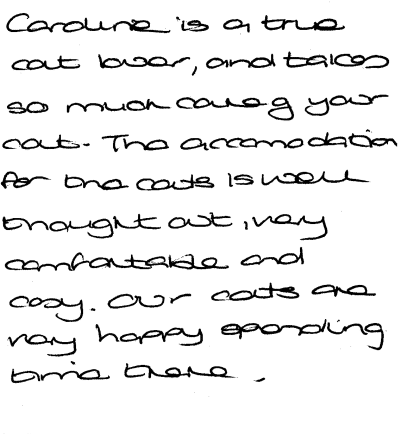 Caroline is a true
cat lover, and takes
so much care of your
cat. The accomodation
for the cats is well
thought out, very
comfortable and
cosy. Our cats are
very happy spending
time there.